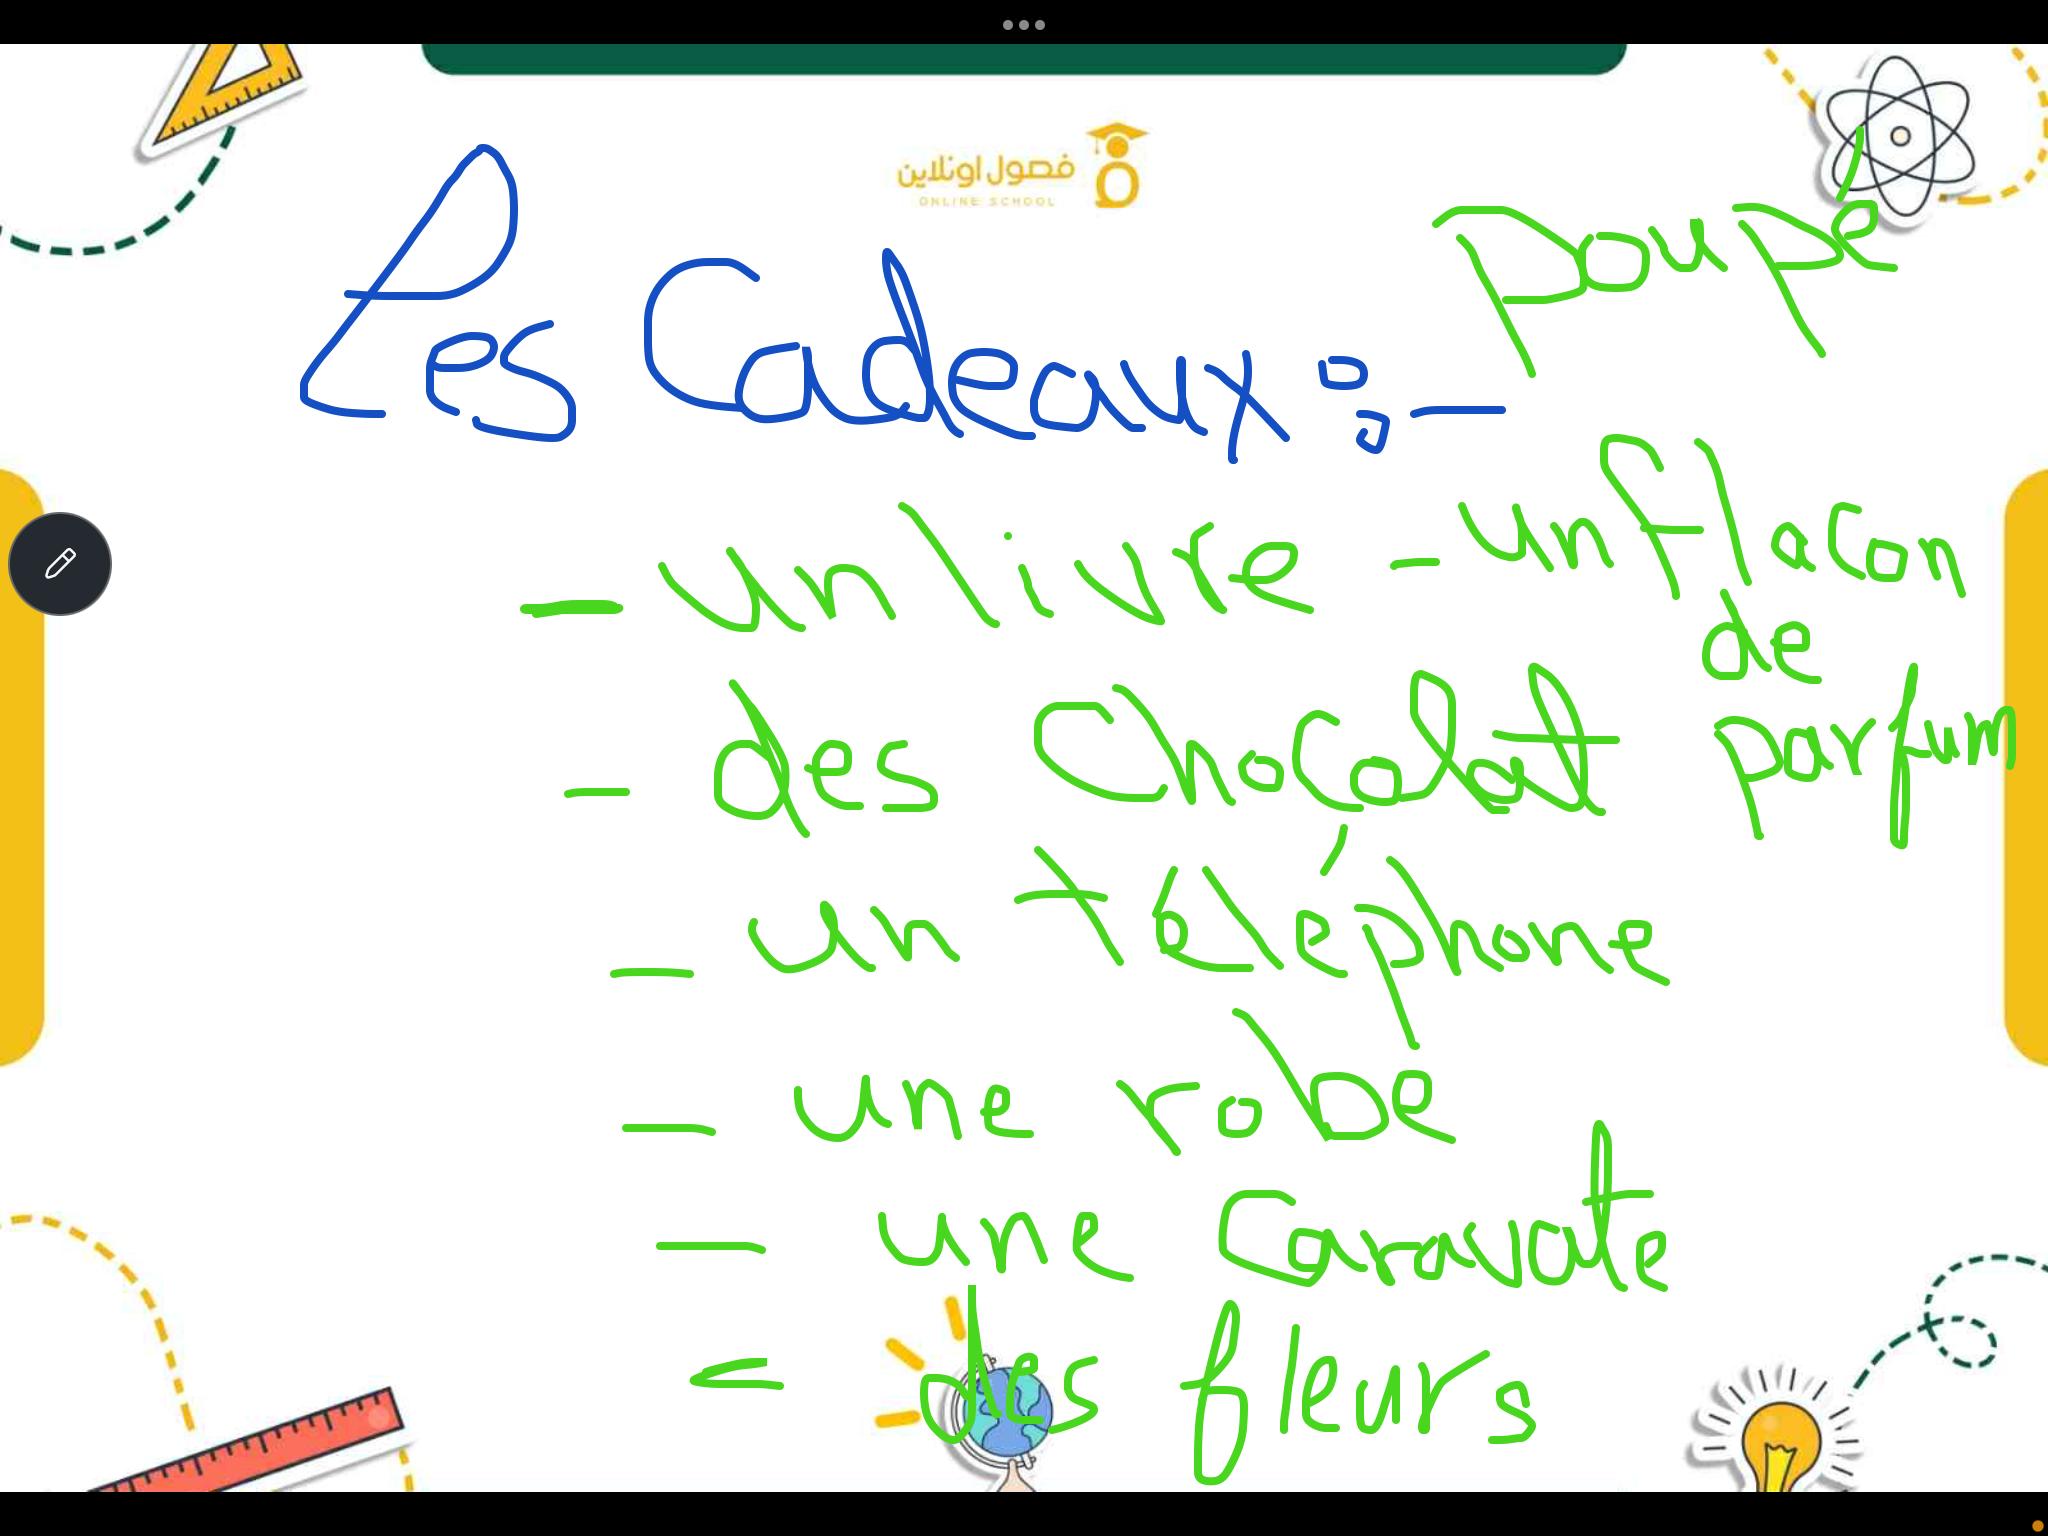 فصول اونلاين
ONLINE SCHOOL
poupé
Les Cadeaux :-
- un livre - un flacon
de
parfum
- des Chocolat
- un téléphone
- une robe
- une Caravate
= des fleurs